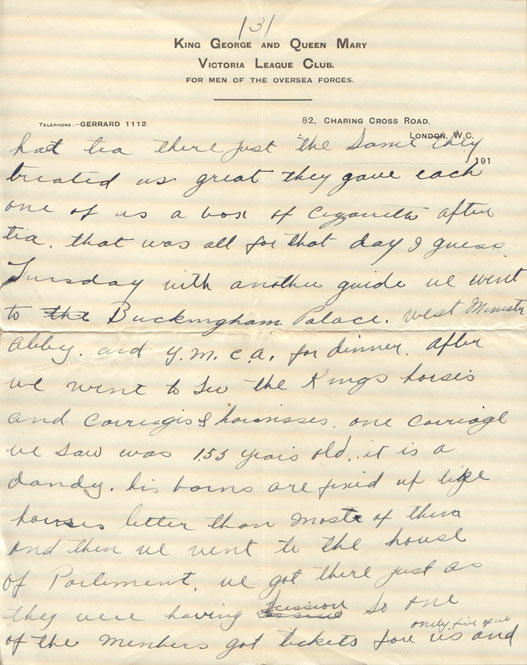 (3)
KING GEORGE AND QUEEN MARY
VICTORIA LEAGUE CLUB.
FOR MEN OF THE OVERSEA FORCES.
TELEPHONE:- GERRARD 1112.
82, CHARING CROSS ROAD,
LONDON, W.C.
191
had tea there just the same they
treated us great they gave each
one of us a box of Cigaretts after
tea. that was all for that day I guess.
Tuesday with another guide we went
to the Buckingham Palace. west Minister
Abby. and Y.M.C.A. for dinner. After
we went to see the Kings horses
and carriages & harnisses. one carriage
we saw was 155 years old. it is a
dandy. his barns are fixed up like
houses better than most of them
and then we went to the house
of Parliment. we got there just as
they were having session so one
only five of us
of the members got tickets fore us and